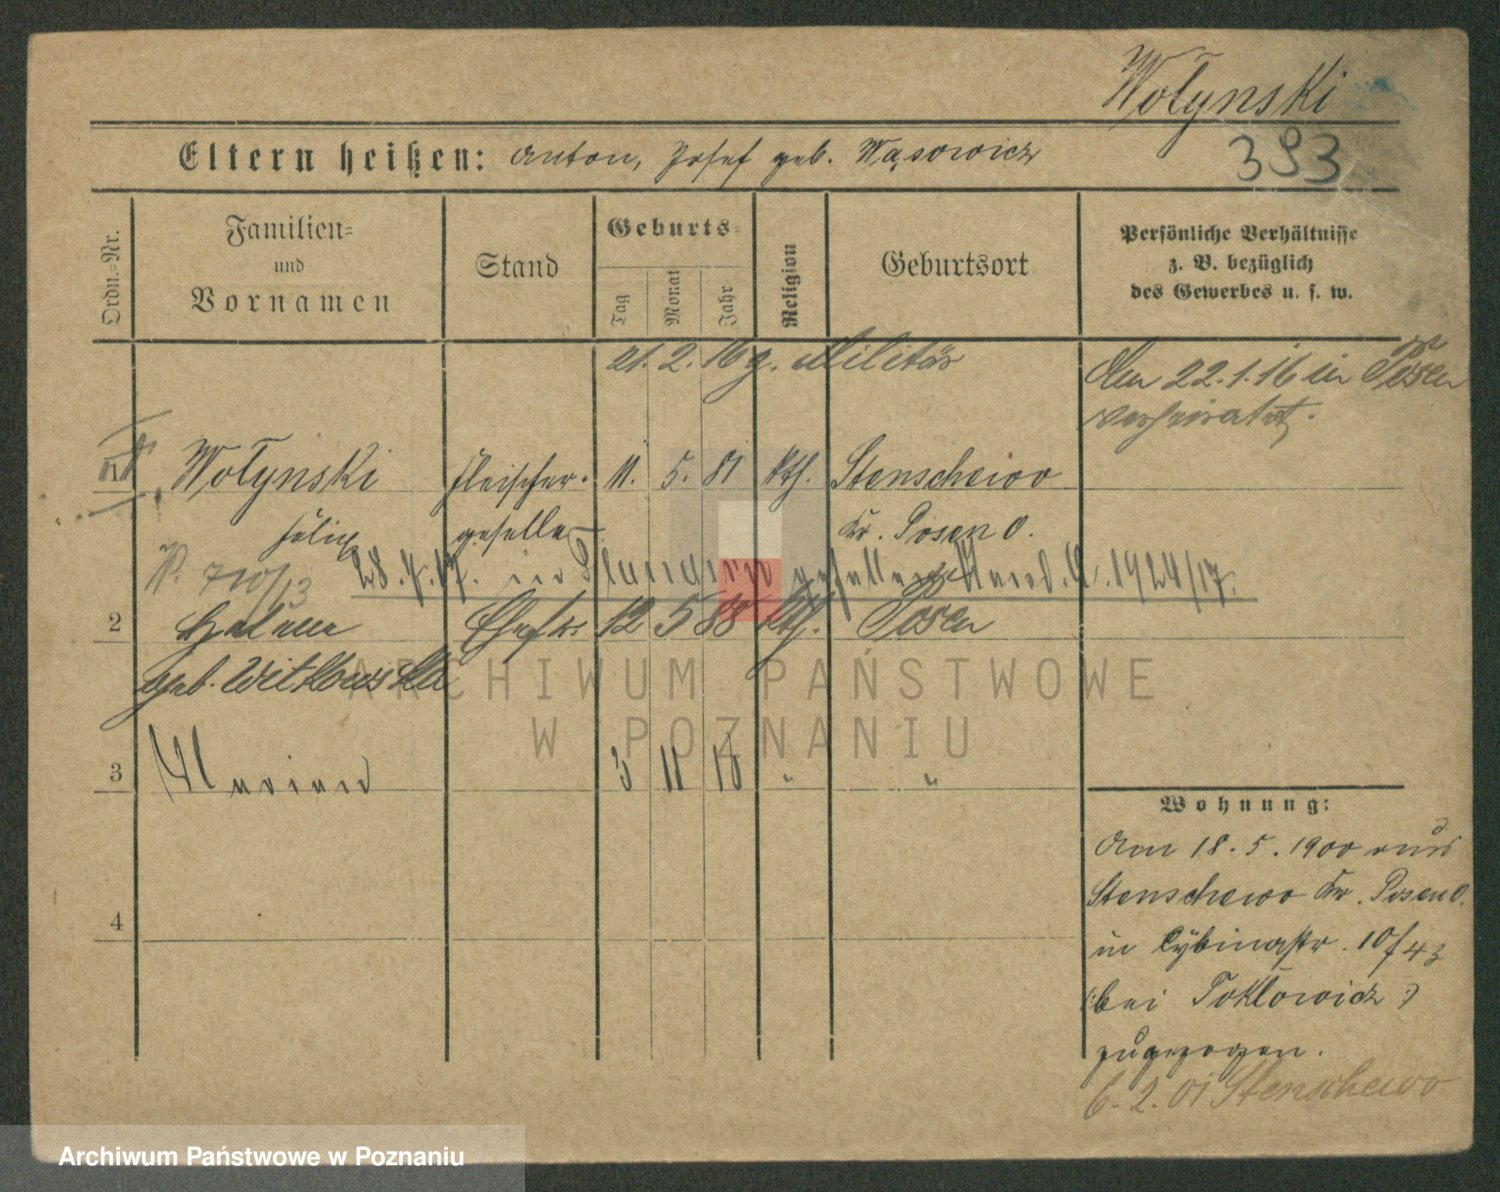 Wołynski
393
Eltern heißen: Anton, Josef geb. Wąsowicz
Ordn.-Nr.
Familien-
und
Vornamen
Stand
Geburts-
Tag
Monat
Jahr
Religion
Geburtsort
Persönliche Verhältnisse
z. B. bezüglich
des Gewerbes u. s. w.
21. 2. 16 z. Militär
Am 22.1.16 in Posen
verheiratet.
Wołynski Fleischer- 11. 5. 81 kth. Stenschewo
Felix geselle Kr. Posen O.
28.4.17. in gefallen 1924/17.
2 Helene Ehefr. 12 5 88 kth. Posen
geb. Witkowska
3 Marian 3 11 16 " "
4
Wohnung:
Am 18.5.1900 aus
Stenschewo Kr. Posen O.
in Cybinastr. 10 f 43
(: bei Tokłowicz :)
zugezogen.
6.2.01 Stenschewo
ARCHIWUM PAŃSTWOWE
W POZNANIU
Archiwum Państwowe w Poznaniu